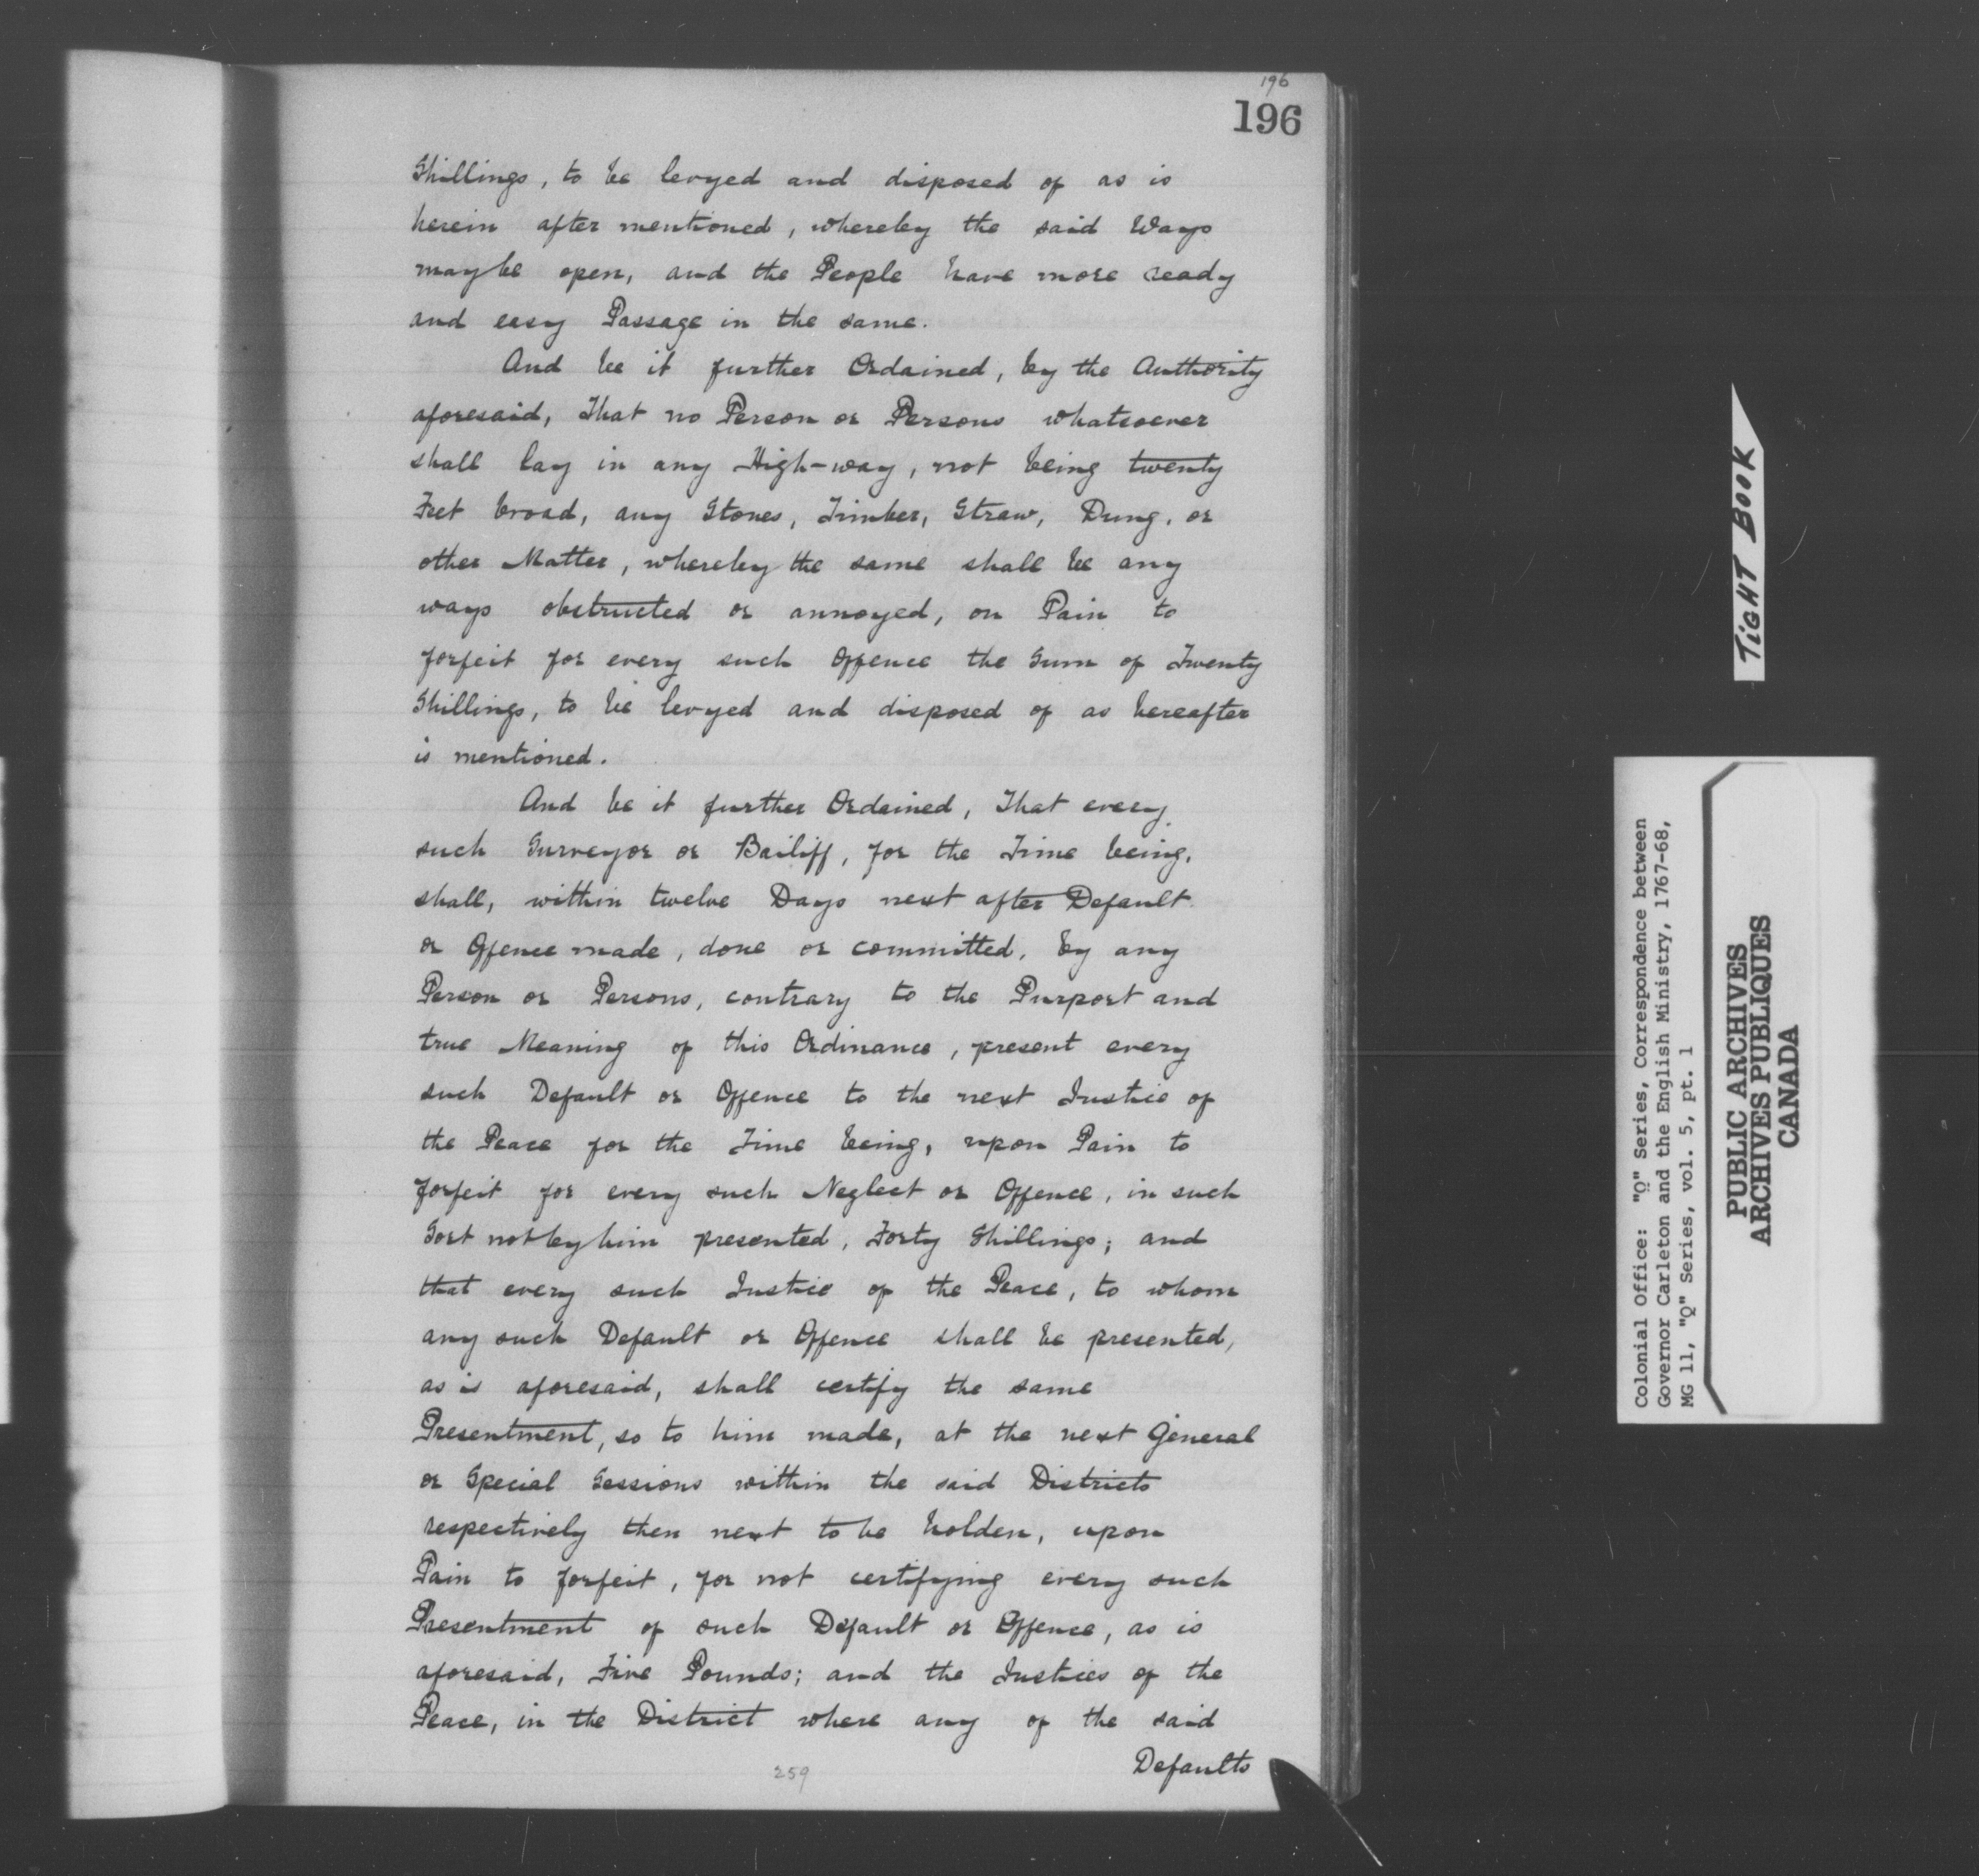 196
196
Shillings, to be levyed and disposed of as is
herein after mentioned, whereby the said Ways
may be open, and the People have more ready
and easy Passage in the same.
And be it further Ordained, by the Authority
aforesaid, That no Person or Persons whatsoever
shall lay in any High-way, not being twenty
Feet broad, any Stones, Timber, Straw, Dung, or
other Matter, whereby the same shall be any
ways obstructed or annoyed, on Pain to
forfeit for every such Offence the Sum of Twenty
Shillings, to be levyed and disposed of as hereafter
is mentioned.
And be it further Ordained, That every
such Surveyor or Bailiff, for the Time being,
shall, within twelve Days next after Default
or Offence made, done or committed, by any
Person or Persons, contrary to the Purport and
true Meaning of this Ordinance, present every
such Default or Offence to the next Justice of
the Peace for the Time being, upon Pain to
forfeit for every such Neglect or Offence, in such
Sort not by him presented, Forty Shillings; and
that every such Justice of the Peace, to whom
any such Default or Offence shall be presented,
as is aforesaid, shall certify the same
Presentment, so to him made, at the next General
or Special Sessions within the said Districts
respectively then next to be holden, upon
Pain to forfeit, for not certifying every such
Presentment of such Default or Offence, as is
aforesaid, Five Pounds; and the Justices of the
Peace, in the District where any of the said
Defaults
259
TIGHT BOOK
Colonial Office: "Q" Series, Correspondence between
Governor Carleton and the English Ministry, 1767-68,
MG 11, "Q" Series, vol. 5, pt. 1
PUBLIC ARCHIVES
ARCHIVES PUBLIQUES
CANADA